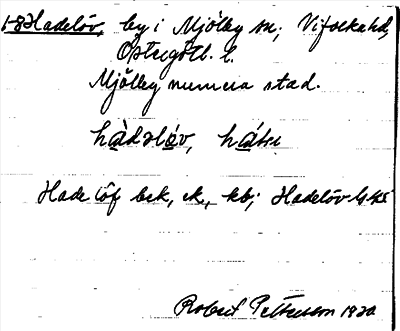 1-8 Hadelöv, by i Mjölby sn, Vifolka hd,
Östergötl. l.
Mjölby numera stad.
hàdəlǿv,
Hadelöf bek, ek, kb; Hadelöv
Robert Petersson 1920